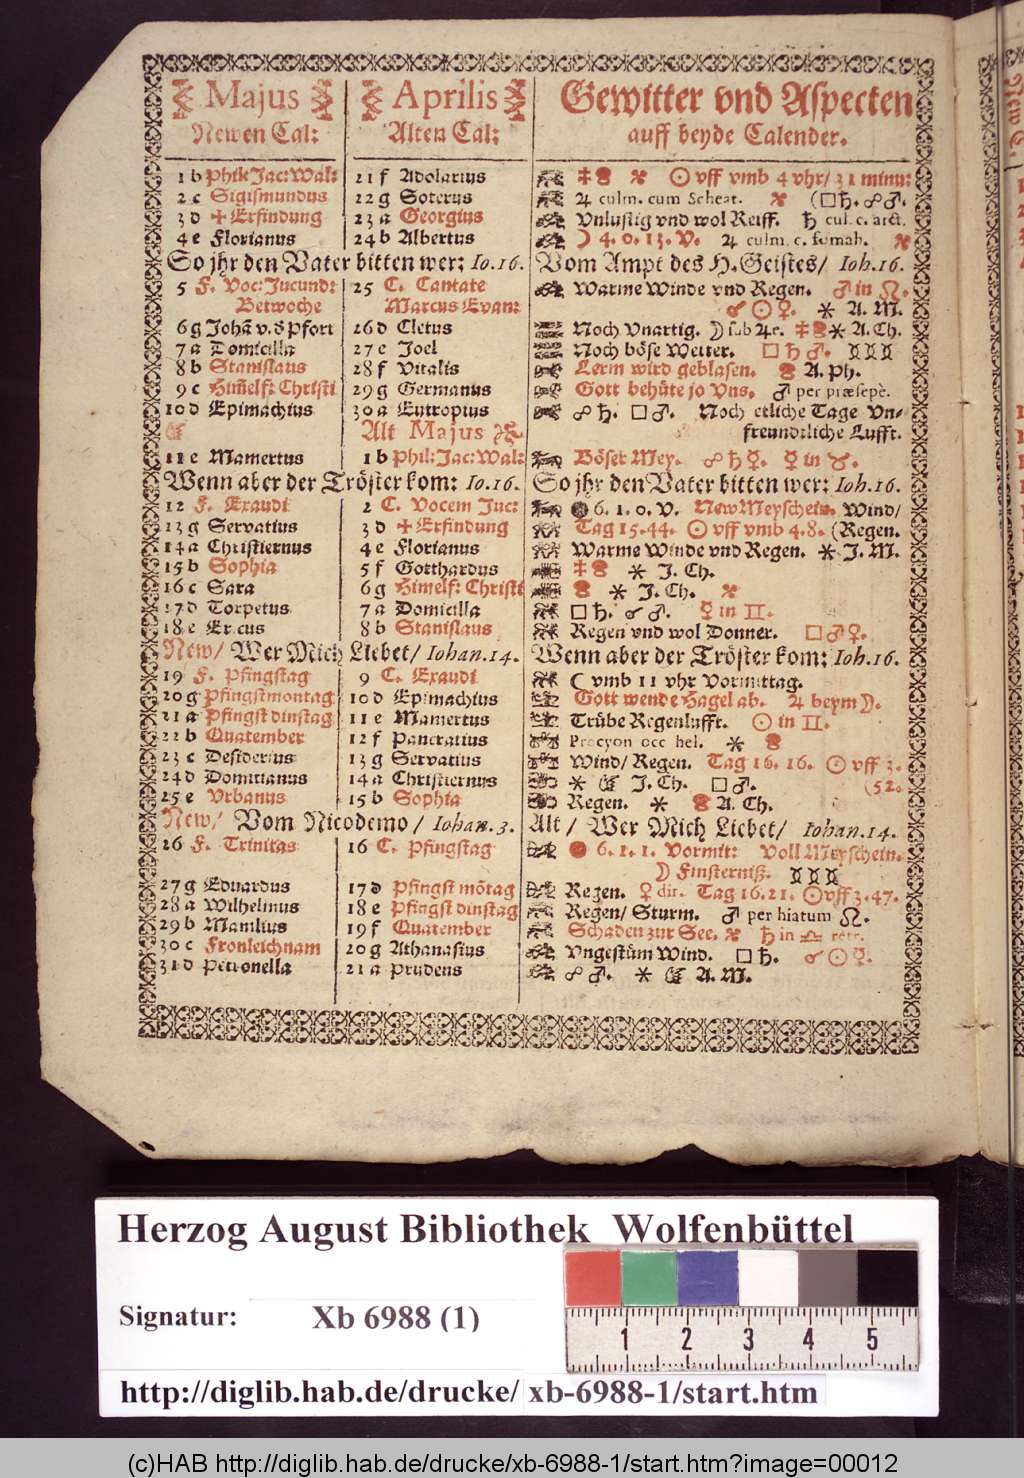 Majus Aprilis Gewitter vnd Aspecten
Newen Cal: Alten Cal: auff beyde Calender.
1 b Phil: Jac: Wal: 21 f Adolarius ☉ vff vmb 4 vhr/ 31 minu:
2 c Sigismundus 22 g Soterus ♃ culm. cum Scheat. (□ ♄. ☍ ♂.
3 d ✢ Erfindung 23 a Georgius Vnlustig vnd wol Reiff. ♄ cul. c. arct.
4 e Florianus 24 b Albertus ☽ 4. 0. 13. V. ♃ culm. c. fomah.
So jhr den Vater bitten wer: Io. 16. Vom Ampt des H. Geistes/ Ioh. 16.
5 F. Voc: Jucund: 25 C. Cantate Warme Winde vnd Regen. ♂ in ♌.
Betwoche Marcus Evan: ☌ ☉ ♀. ⚹ A. M.
6 g Johã v. d Pfort 26 d Cletus Noch Vnartig. ☽ sub ♃ e. ⚹ A. Ch.
7 a Domicilla 27 e Joel Noch böse Wetter. □ ♄ ♂. ♊♊♊
8 b Stanislaus 28 f Vitalis Lerm wird geblasen. A. Ph.
9 c Him̃elf: Christi 29 g Germanus Gott behüte jo Vns. ♂ per præsepè.
10 d Epimachius 30 a Eutropius ☍ ♄. □ ♂. Noch etliche Tage Vn-
Alt Majus freundtliche Lufft.
11 e Mamertus 1 b Phil: Jac: Wal: Böser Mey. ☍ ♄ ☿. ☿ in ♉.
Wenn aber der Tröster kom: Io. 16. So jhr den Vater bitten wer: Ioh. 16.
12 F. Exaudi 2 C. Vocem Juc: 6. 1. 0. V. New Meyschein. Wind/
13 g Servatius 3 d ✢ Erfindung Tag 15. 44. ☉ vff vmb 4. 8. (Regen.
14 a Christiernus 4 e Florianus Warme Winde vnd Regen. ⚹ J. M.
15 b Sophia 5 f Gotthardus ⚹ J. Ch.
16 c Sara 6 g Himelf: Christi ⚹ J. Ch.
17 d Torpetus 7 a Domicilla □ ♄. ☌ ♂. ☿ in ♊.
18 e Ericus 8 b Stanislaus Regen vnd wol Donner. □ ♂ ♀.
New/ Wer Mich Liebet/ Iohan. 14. Wenn aber der Tröster kom: Ioh. 16.
19 F. Pfingstag 9 C. Exaudi ☾ vmb 11 vhr Vormittag.
20 g Pfingstmontag 10 d Epimachius Gott wende Hagel ab. ♃ beym ☽.
21 a Pfingst dinstag 11 e Mamertus Trübe Regenlufft. ☉ in ♊.
22 b Quatember 12 f Pancratius Procyon occ hel. ⚹
23 c Desiderius 13 g Servatius Wind/ Regen. Tag 16. 16. ☉ vff 3.
24 d Domitianus 14 a Christiernus ⚹ J. Ch. □ ♂. (52.
25 e Vrbanus 15 b Sophia Regen. ⚹ A. Ch.
New/ Vom Nicodemo/ Iohan. 3. Alt/ Wer Mich Liebet/ Iohan. 14.
26 F. Trinitas 16 C. Pfingstag 6. 1. 1. Vormit: Voll Meyschein.
☽ Finsterniß. ♊♊♊
27 g Eduardus 17 d Pfingst mõtag Regen. ♀ dir. Tag 16. 21. ☉ vff 3. 47.
28 a Wilhelmus 18 e Pfingst dinstag Regen/ Sturm. ♂ per hiatum ♌.
29 b Manilius 19 f Quatember Schaden zur See. ♄ in ♎ retr.
30 c Fronleichnam 20 g Athanasius Vngestüm Wind. □ ♄. ☌ ☉ ☿.
31 d Petronella 21 a Prudens ☍ ♂. ⚹ A. M.
Herzog August Bibliothek Wolfenbüttel
Signatur: Xb 6988 (1)
1 2 3 4 5
http://diglib.hab.de/drucke/ xb-6988-1/start.htm
(c)HAB http://diglib.hab.de/drucke/xb-6988-1/start.htm?image=00012